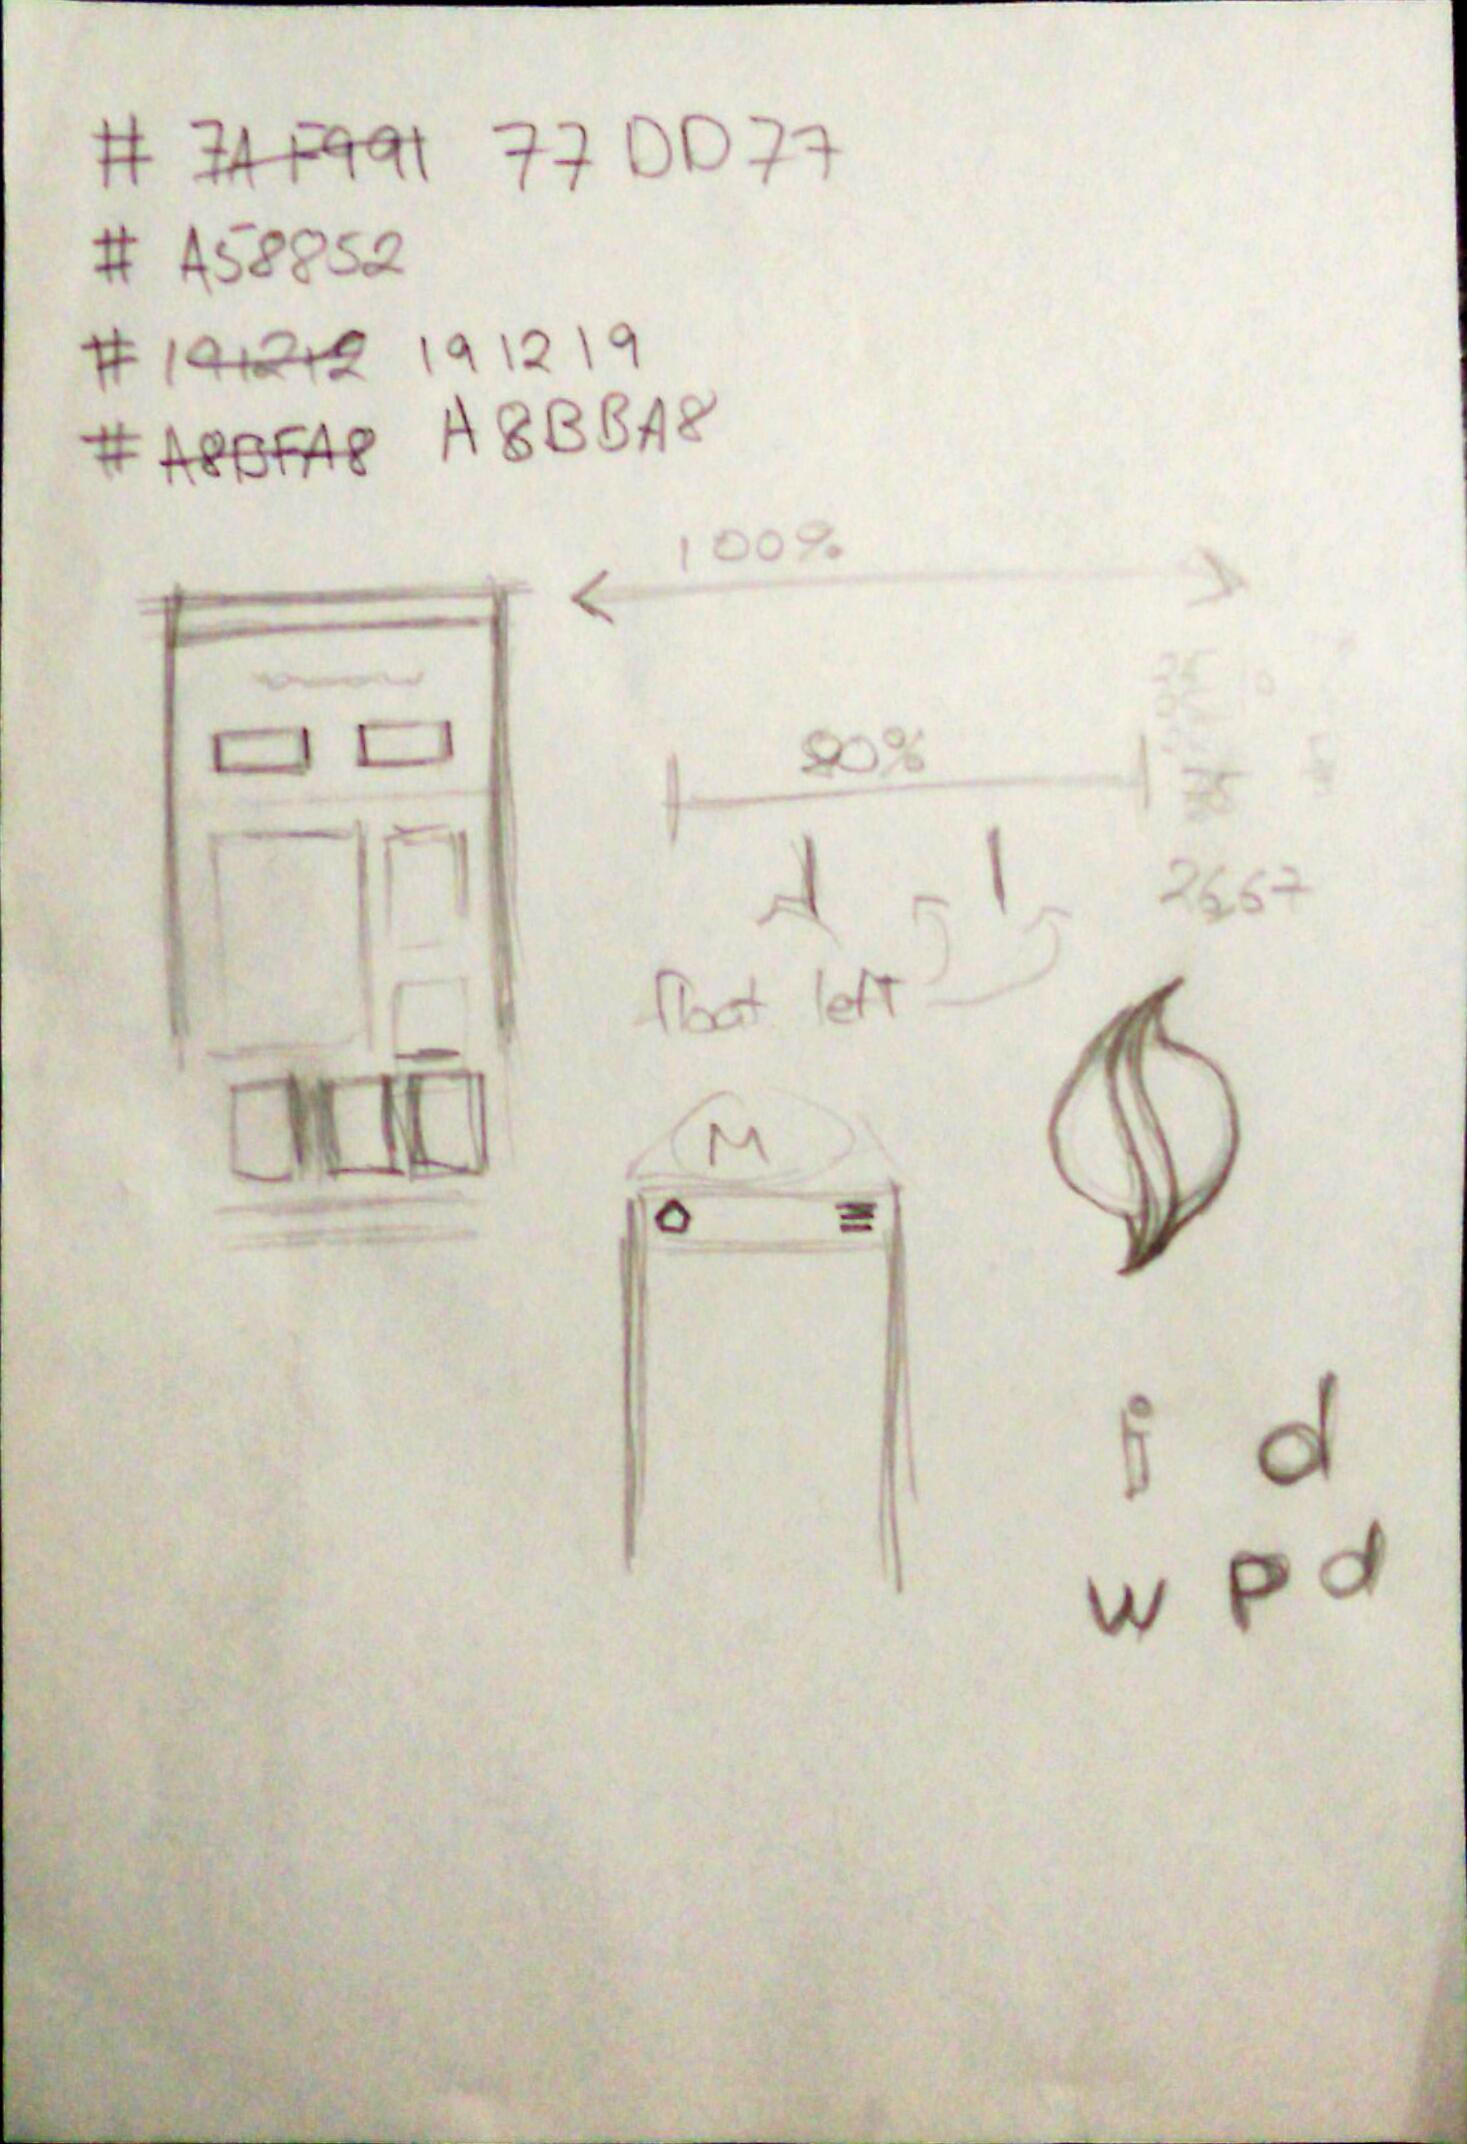 # 7AF991 77DD77
# A58852
# 191212 191219
# A8BFA8 A8BBA8
100%
80%
2667
float left
M
i d
w p d